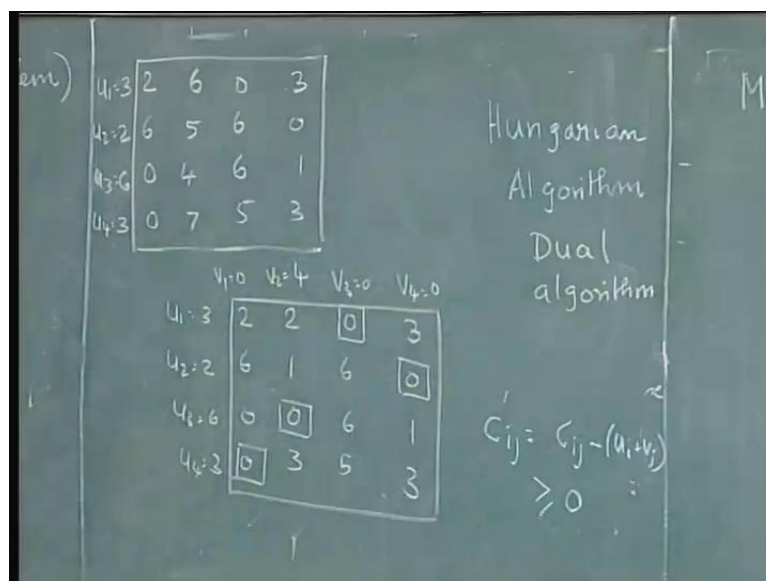 em)
u₁=3 2 6 0 3
u₂=2 6 5 6 0
u₃=6 0 4 6 1
u₄=3 0 7 5 3
V₁=0 V₂=4 V₃=0 V₄=0
u₁=3 2 2 0 3
u₂=2 6 1 6 0
u₃=6 0 0 6 1
u₄=3 0 3 5 3
Hungarian
Algorithm
Dual
algorithm
C'ij = Cij - (ui+vj)
≥ 0
M